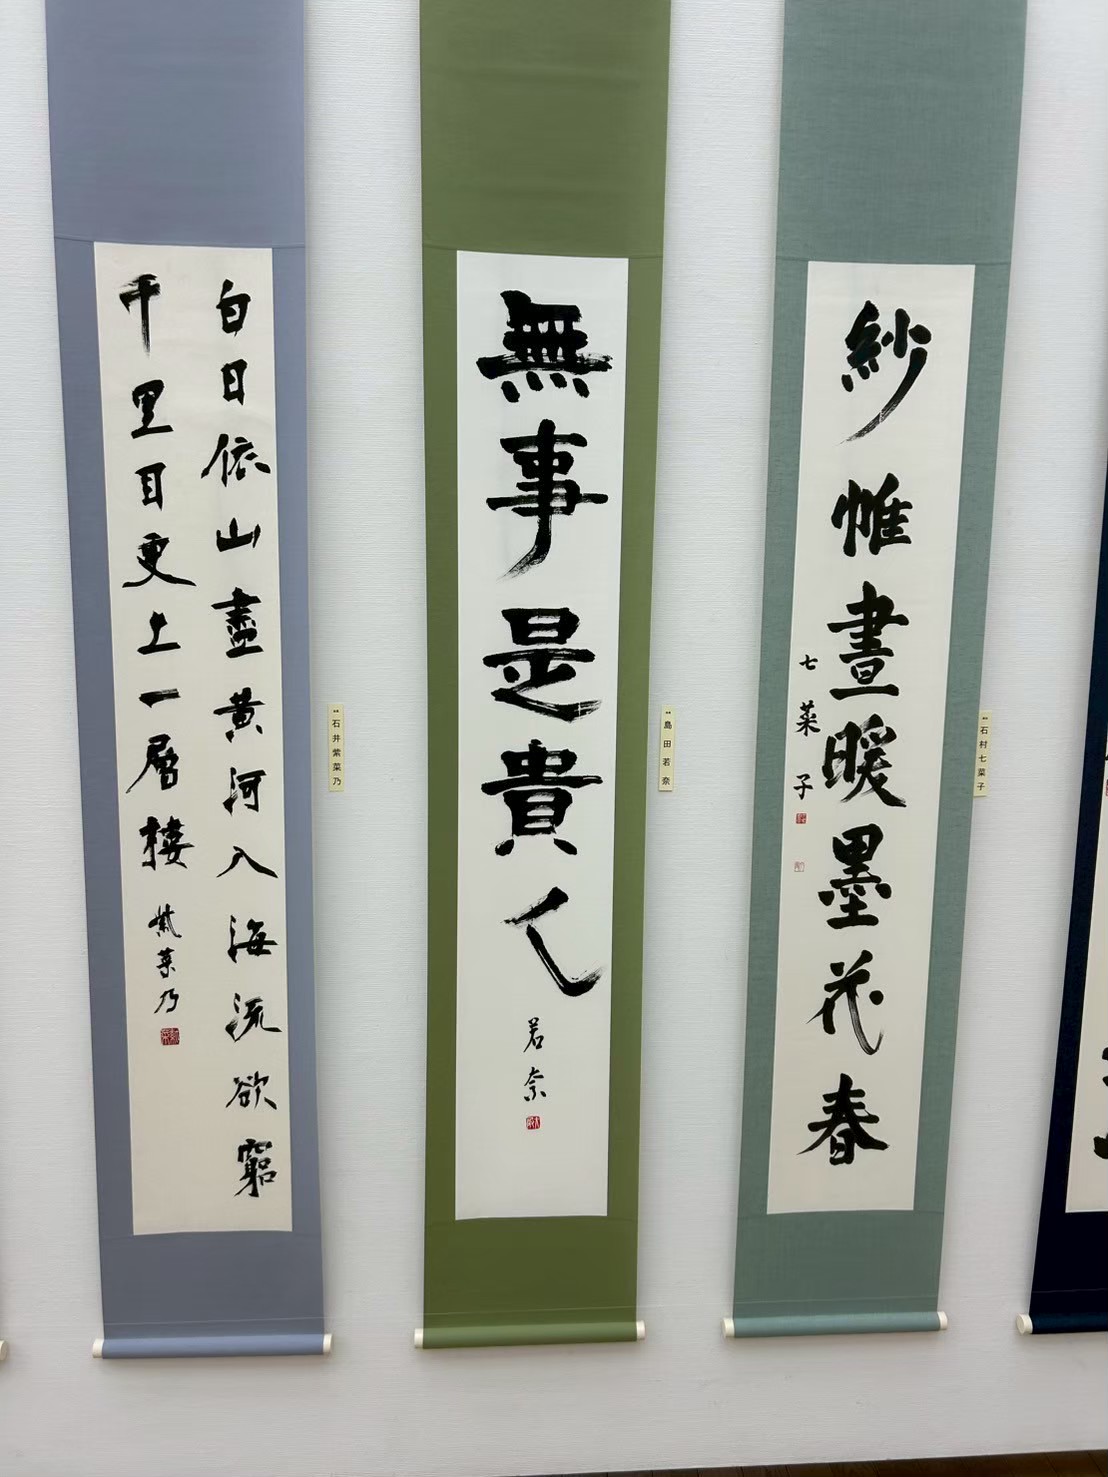 紗帷晝暖墨花春
七菜子
石村七菜子
無事是貴人
若奈
島田若奈
白日依山盡黄河入海流欲窮
千里目更上一層樓
紫菜乃
石井紫菜乃